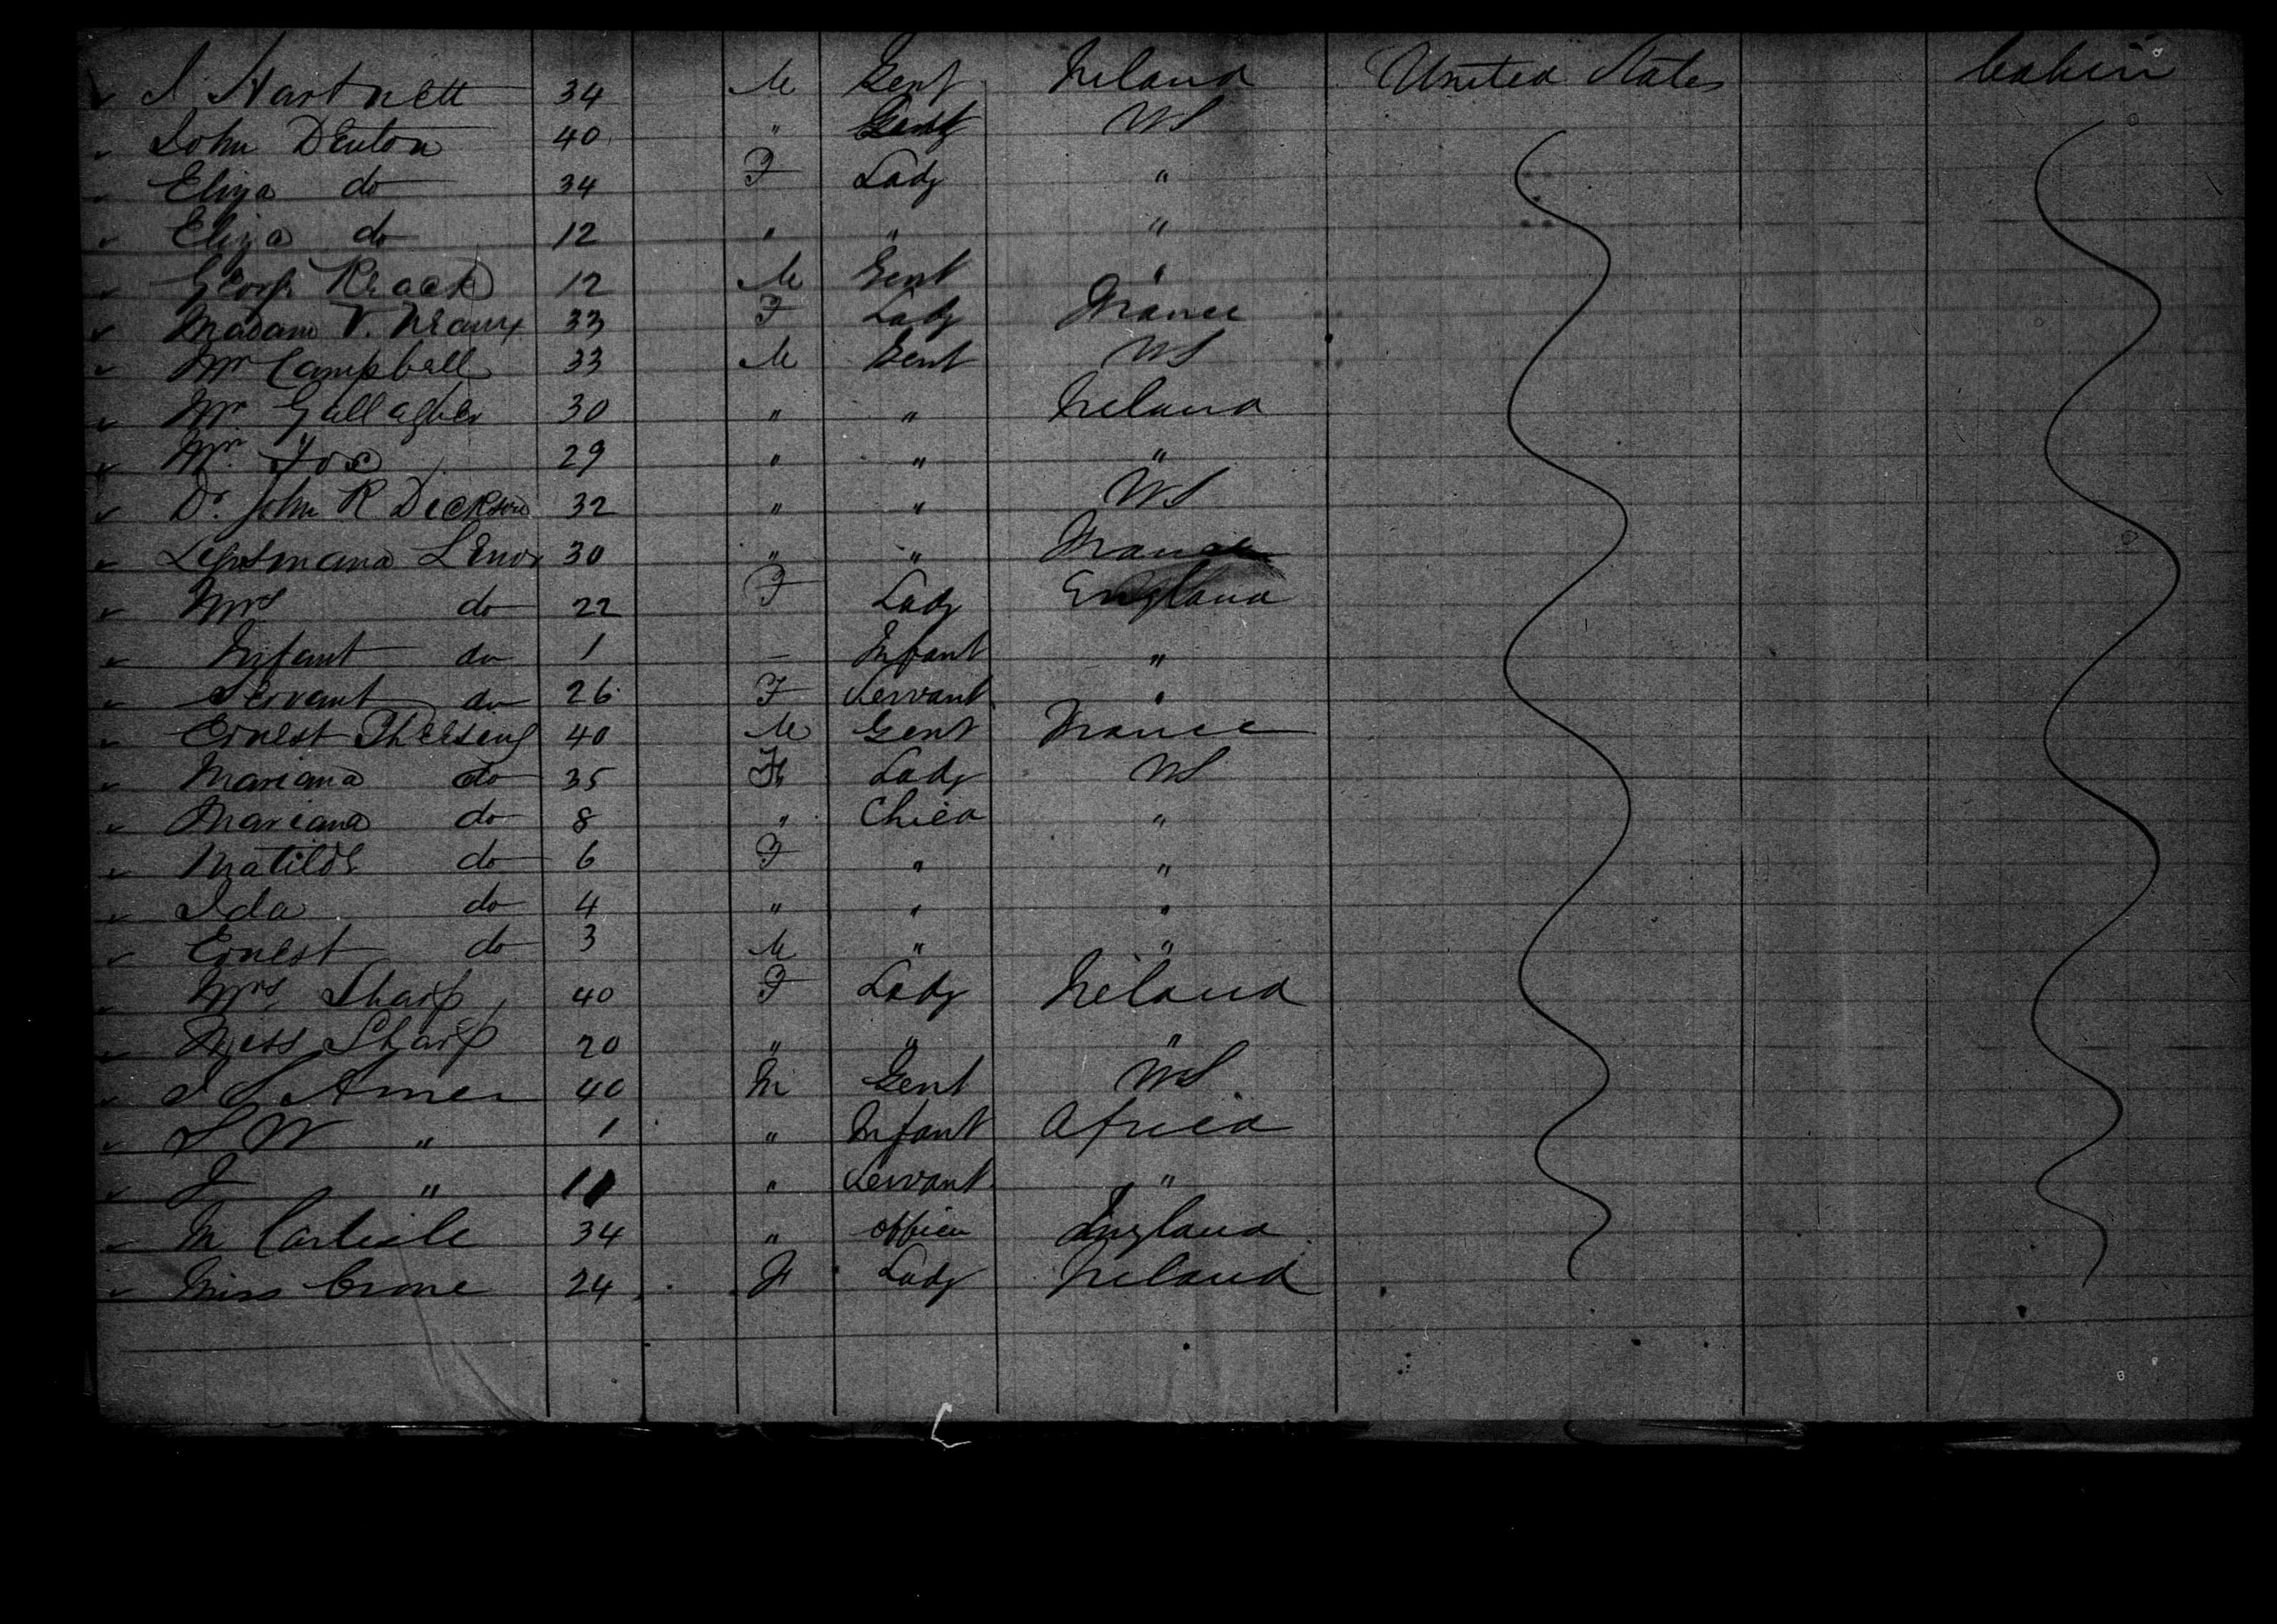 J Hartnett 34 M Gent Ireland United States Cabin
John Denton 40 " Gent US
Eliza do 34 F Lady "
Eliza do 12 " " "
George 12 M Gent "
Madam V. 33 F Lady France
Mr Campbell 33 M Gent US
Mr Gallagher 30 " " Ireland
Mr Fox 29 " " "
Dr. John R Dickson 32 " " US
30 " " France
Mrs do 22 F Lady England
Infant do 1 – Infant "
Servant do 26 F Servant "
Ernest 40 M Gent France
Mariana do 35 F Lady US
Mariana do 8 " Child "
Matilde do 6 F " "
Ida do 4 " " "
Ernest do 3 M " "
Mrs Sharp 40 F Lady Ireland
Miss Sharp 20 " " "
40 M Gent US
S W " 1 " Infant Africa
J " 11 " Servant "
M Carlisle 34 " officer England
Miss Crone 24 F Lady Ireland